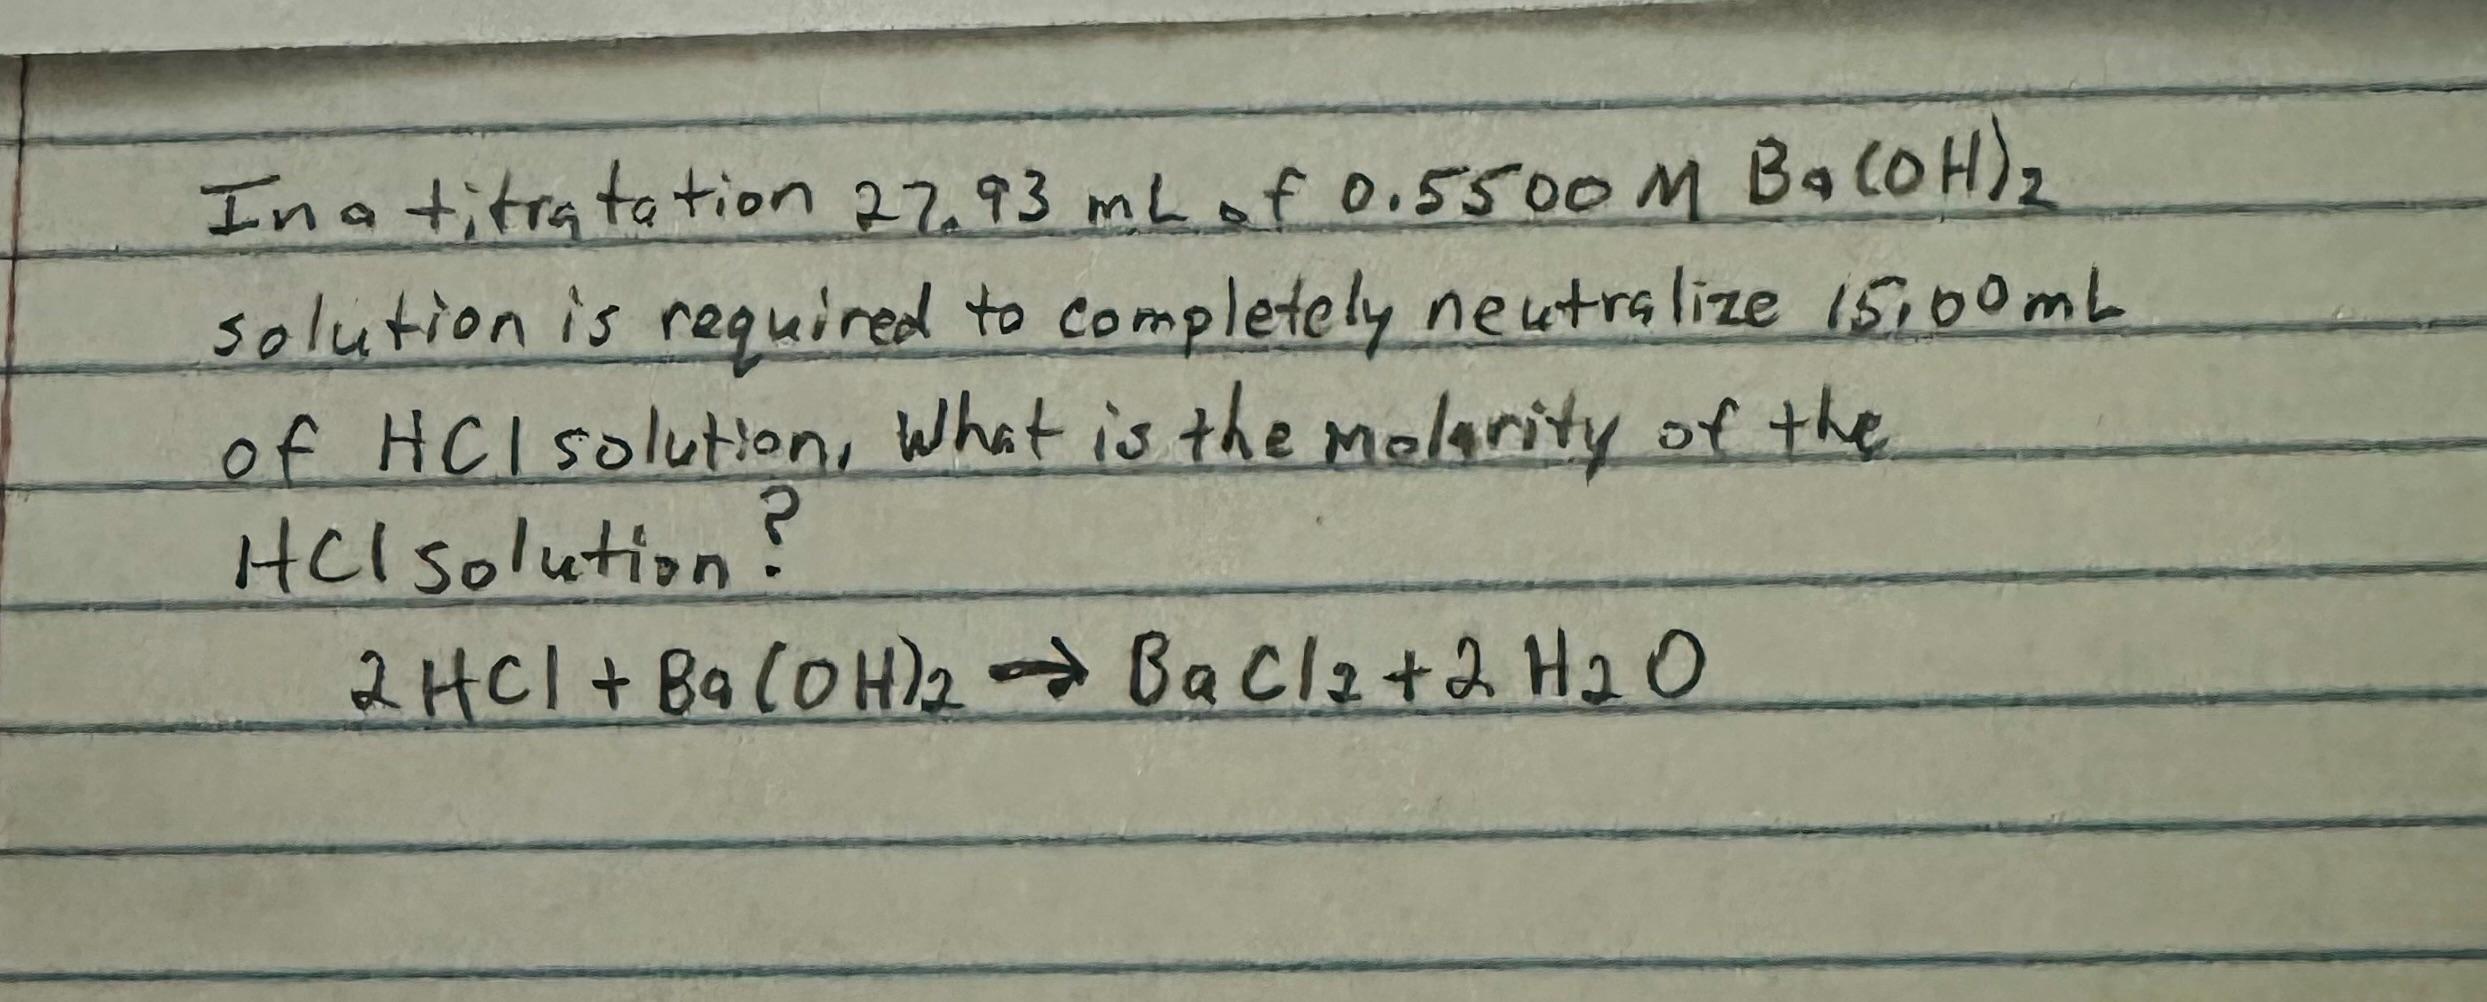 In a titratation 27.93 mL of 0.5500 M Ba(OH)2
solution is required to completely neutralize 15.00 mL
of HCl solution, What is the molarity of the
HCl solution?
2 HCl + Ba(OH)2 → BaCl2 + 2 H2O